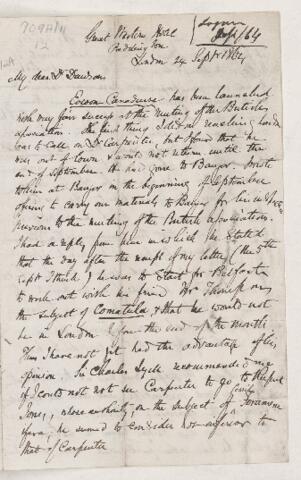 Logan
Sept/64
709A/11
12
Great Western Hotel
Paddington
London 24 Sept 1864
My dear Dr Dawson
Eozoon Canadense has been launched
with very fair success at the Meeting of the British
Association. The first thing I did on reaching London
was to call on Dr Carpenter, but I found that he
was out of town & would not return until the
end of September. He had gone to Bangor. I wrote
to him at Bangor in the beginning of September
offering to carry our materials to Bangor for his use
previous to the meeting of the British Association.
I had a reply from him in which he stated
that the day after the receipt of my letter (the 5th
Sept I think) he was to start for Belfast
to work out with his friend Dr Thompson
the subject of Comatula & that he would not
be in London before the end of the month
Thus I have not yet had the advantage of his
opinion. Sir Charles Lyell recommended me
if I could not see Carpenter to go to Rupert
Jones, whose authority on the subject of Foramini
fera, he seemed to consider not inferior to
that of Carpenter